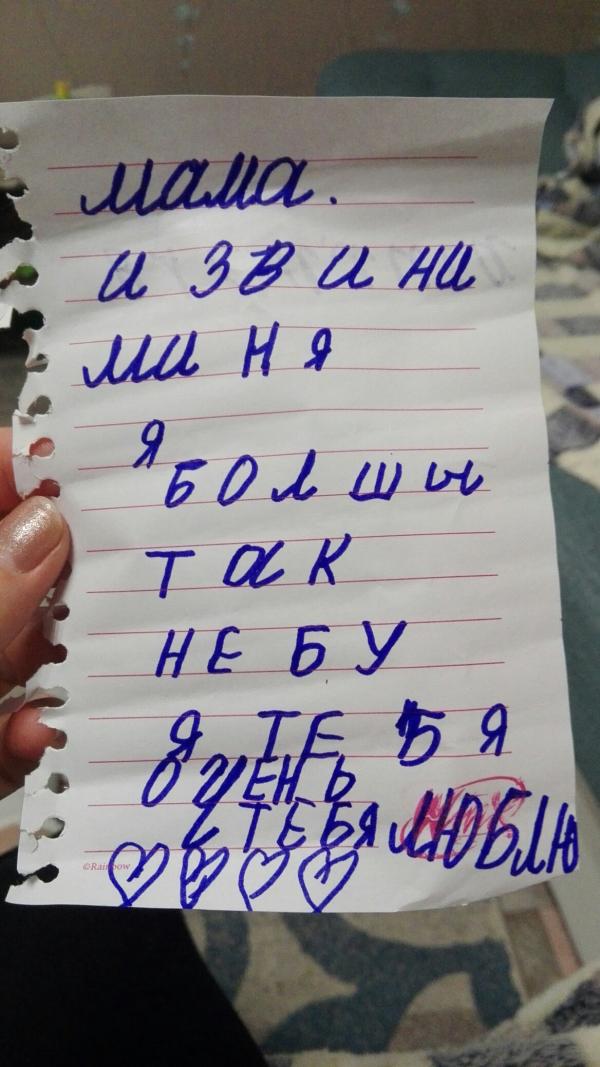 мама.
и З В и ни
ми Н я
я
Б О л ш ы
Т а К
Н Е Б У
Я Т Е Б Я
ОЧЕНЬ
ТЕБЯ ЛЮБЛЮ
©Rainbow